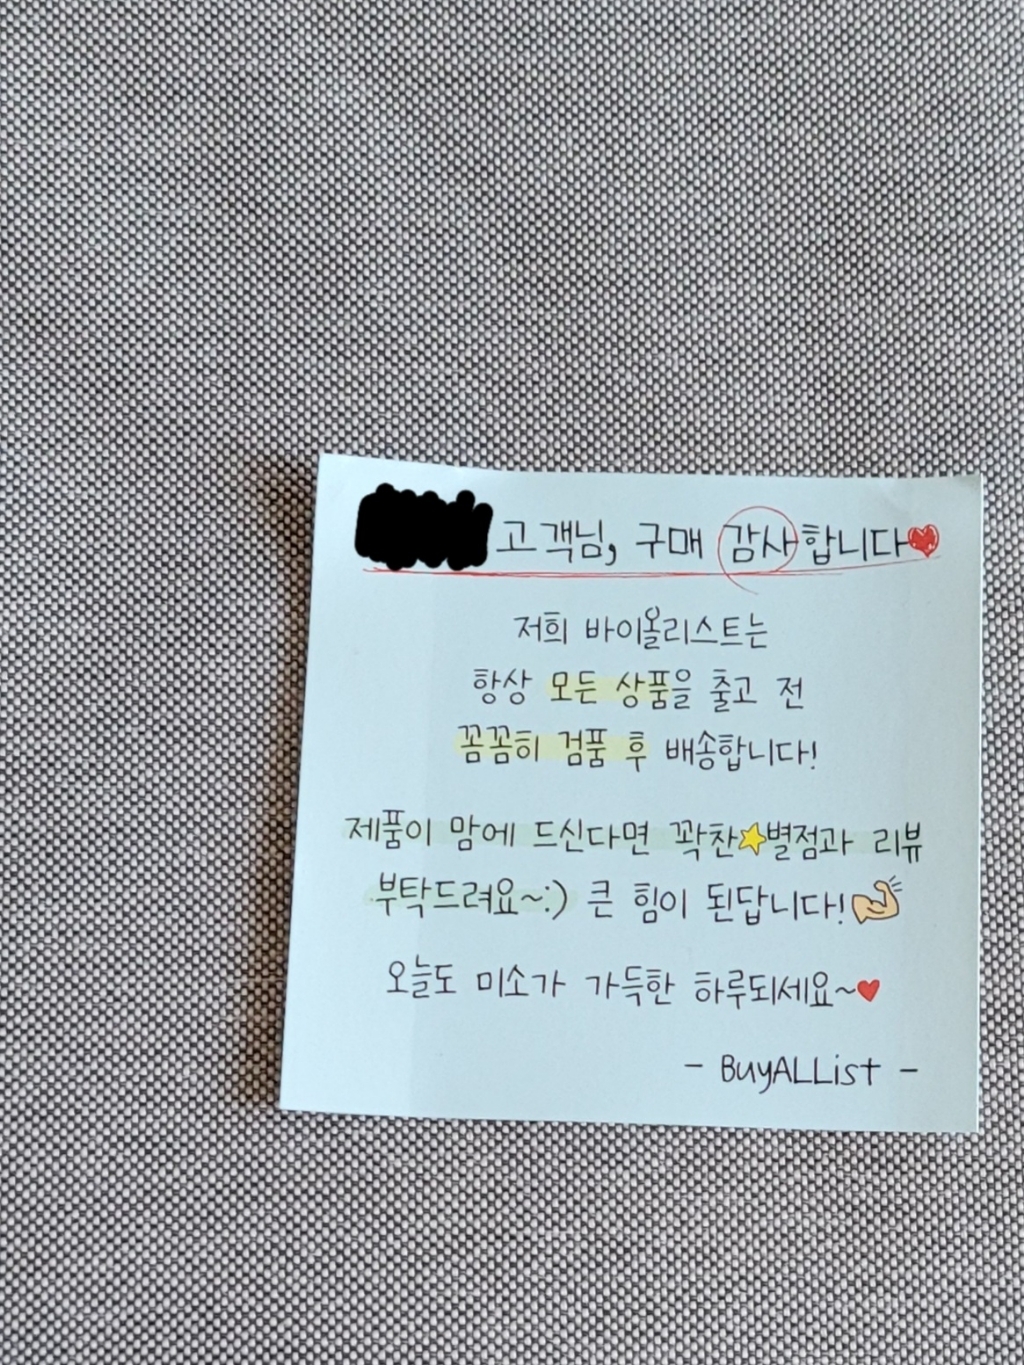 고객님, 구매 감사합니다
저희 바이올리스트는
항상 모든 상품을 출고 전
꼼꼼히 검품 후 배송합니다!
제품이 맘에 드신다면 꽉찬⭐별점과 리뷰
부탁드려요~:) 큰 힘이 된답니다!
오늘도 미소가 가득한 하루되세요~♥
- BuyALList -